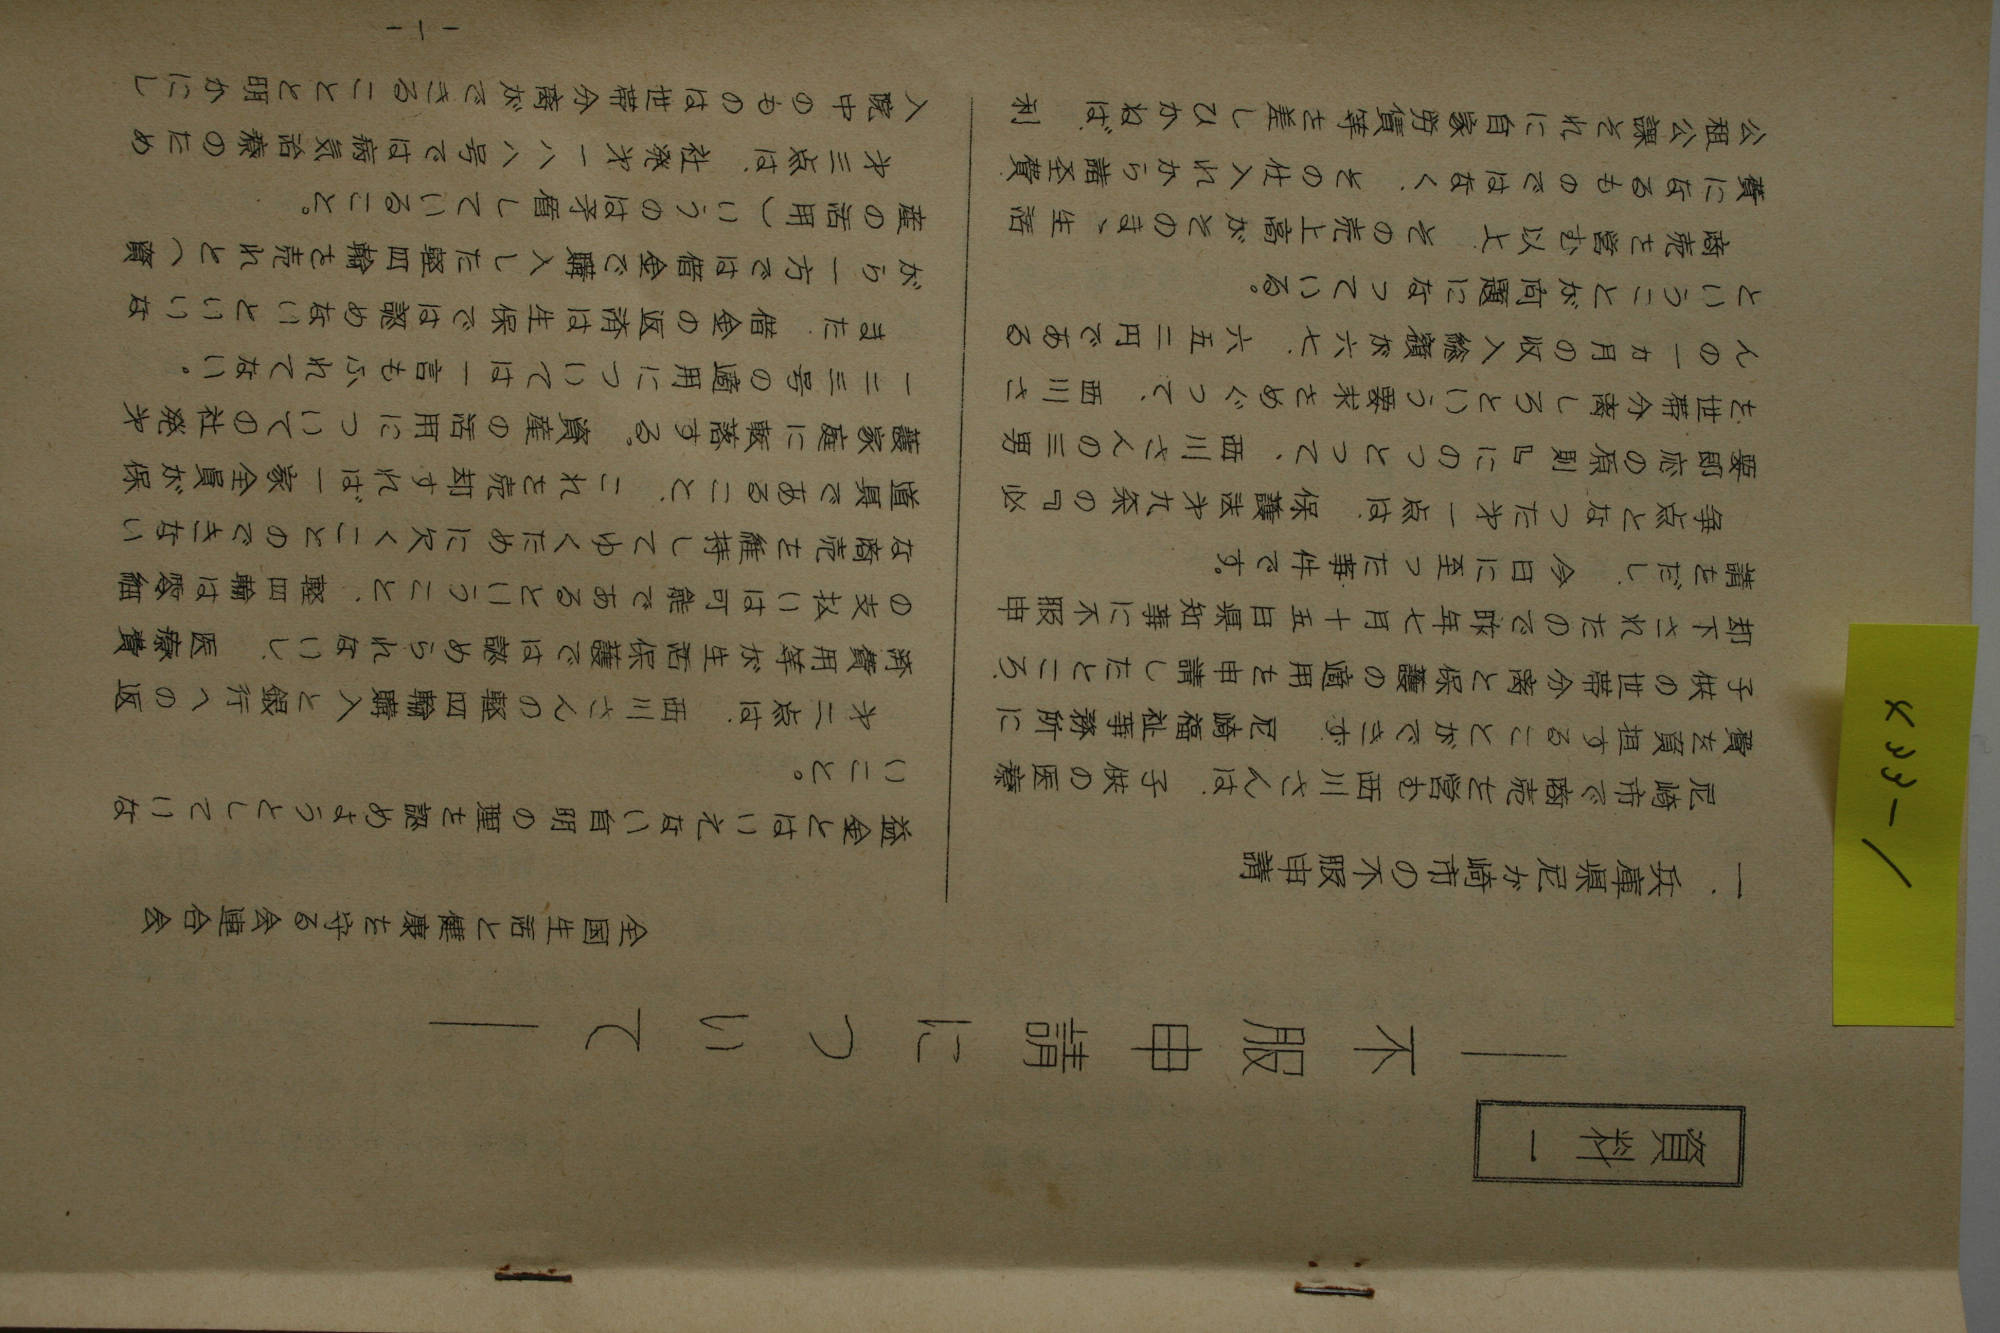 資料一
―不服申請について―
全国生活と健康を守る会連合会
一、兵庫県尼が崎市の不服申請
尼崎市で商売を営む西川さんは、子供の医療
費を負担することができず、尼崎福祉事務所に
子供の世帯分離と保護の適用を申請したところ、
却下されたので昨年七月十五日県知事に不服申
請をだし、今日に至った事件です。
争点となつた才一点は、保護法才九条の『必
要即応の原則』にのつとつて、西川さんの三男
を世帯分離しろという要求をめぐつて、西川さ
んの一カ月の収入総額が六七、六五二円である
ということが問題になつている。
商売を営む以上、その売上高がそのまゝ生活
費になるものではなく、その仕入れから諸経費
公租公課それに自家労賃等を差しひかねば、利
益金とはいえない自明の理を認めようとしていな
いこと。
才二点は、西川さんの軽四輪購入と銀行への返
済費用等が生活保護では認められないし、医療費
の支払いは可能であるということ、軽四輪は零細
な商売を維持してゆくために欠くことのできない
道具であること、これを売却すれば一家全員が保
護家庭に転落する。資産の活用についての社発才
一二三号の適用については一言もふれてない。
また、借金の返済は生保では認めないといいな
がら一方では借金で購入した軽四輪を売れと（資
産の活用）いうのは矛盾していること。
才三点は、社発才一八八号では病気治療のため
入院中のものは世帯分離ができることと明かにし
―1―